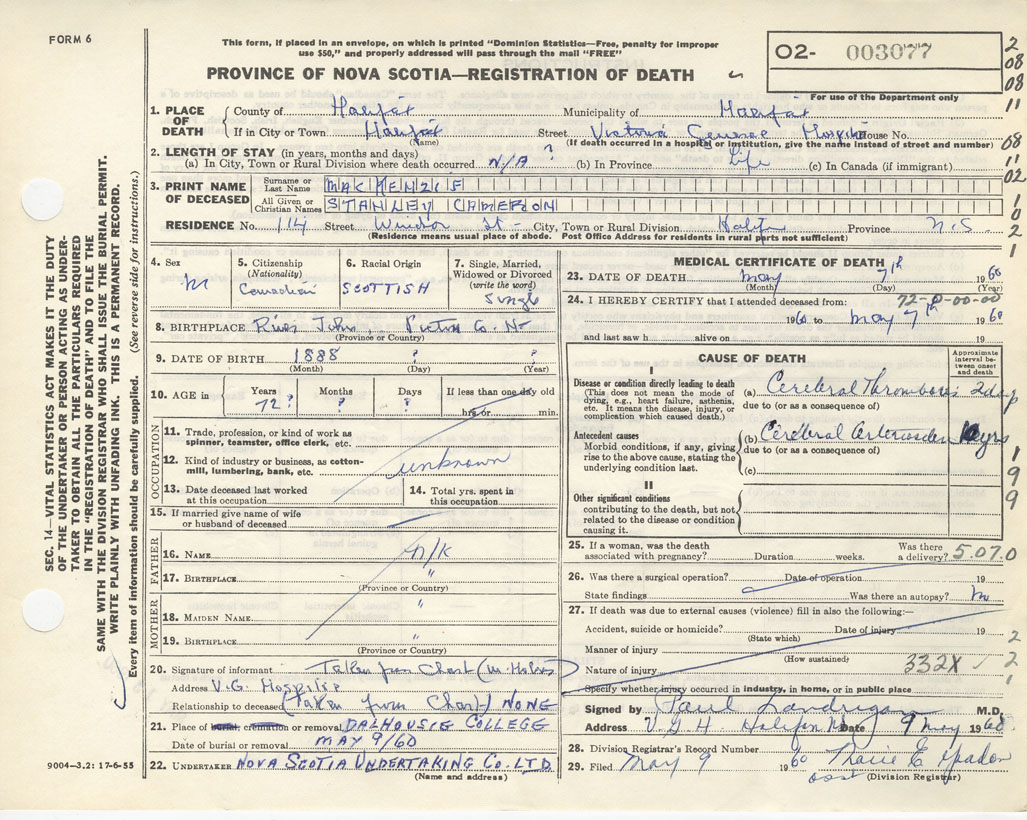 FORM 6
This form, if placed in an envelope, on which is printed "Dominion Statistics—Free, penalty for improper
use $50," and properly addressed will pass through the mail "FREE"
PROVINCE OF NOVA SCOTIA—REGISTRATION OF DEATH
O2- 003077
For use of the Department only
2
08
08
11
08
11
02
1
0
2
1
1. PLACE OF DEATH
County of Halifax Municipality of Halifax
If in City or Town Halifax Street Victoria General Hospital House No.
(Name) (If death occurred in a hospital or institution, give the name instead of street and number)
2. LENGTH OF STAY (in years, months and days)
(a) In City, Town or Rural Division where death occurred N/A ? (b) In Province Life (c) In Canada (if immigrant)
3. PRINT NAME OF DECEASED
Surname or Last Name MACKENZIE
All Given or Christian Names STANLEY CAMERON
RESIDENCE No. 114 Street Windsor St - City, Town or Rural Division Halifax Province N.S.
(Residence means usual place of abode. Post Office Address for residents in rural parts not sufficient)
4. Sex
M
5. Citizenship
(Nationality)
Canadian
6. Racial Origin
SCOTTISH
7. Single, Married,
Widowed or Divorced
(write the word)
Single
8. BIRTHPLACE River John, Pictou Co. NS
(Province or Country)
9. DATE OF BIRTH 1888 ? ?
(Month) (Day) (Year)
10. AGE in
Years 72?
Months ?
Days ?
If less than one day old
hrs or min.
OCCUPATION
11. Trade, profession, or kind of work as
spinner, teamster, office clerk, etc.
12. Kind of industry or business, as cotton-
mill, lumbering, bank, etc. unknown
13. Date deceased last worked
at this occupation
14. Total yrs. spent in
this occupation
15. If married give name of wife
or husband of deceased
FATHER
16. NAME n/K
17. BIRTHPLACE "
(Province or Country)
MOTHER
18. MAIDEN NAME "
19. BIRTHPLACE "
(Province or Country)
20. Signature of informant Taken from Chart
Address V.G. Hospital
Relationship to deceased (taken from Chart) NONE
21. Place of burial, cremation or removal DALHOUSIE COLLEGE
Date of burial or removal MAY 9/60
22. UNDERTAKER NOVA SCOTIA UNDERTAKING CO. LTD.
(Name and address)
MEDICAL CERTIFICATE OF DEATH
23. DATE OF DEATH May 7th 1960
(Month) (Day) (Year)
24. I HEREBY CERTIFY that I attended deceased from: 72-0-00-00
1960 to May 7th 1960
and last saw h alive on 19
CAUSE OF DEATH
Approximate
interval be-
tween onset
and death
I
Disease or condition directly leading to death
(This does not mean the mode of
dying, e.g., heart failure, asthenia,
etc. It means the disease, injury, or
complication which caused death.)
(a) Cerebral Thrombosis 2 days
due to (or as a consequence of)
Antecedent causes
Morbid conditions, if any, giving
rise to the above cause, stating the
underlying condition last.
(b) Cerebral yrs
due to (or as a consequence of)
(c)
II
Other significant conditions
contributing to the death, but not
related to the disease or condition
causing it.
1
9
9
25. If a woman, was the death
associated with pregnancy? Duration weeks. Was there
a delivery? 5.07.0
26. Was there a surgical operation? Date of operation 19
State findings Was there an autopsy? no
27. If death was due to external causes (violence) fill in also the following:—
Accident, suicide or homicide? Date of injury 19
(State which)
Manner of injury
(How sustained)
Nature of injury 332X ✓
2
2
1
Specify whether injury occurred in industry, in home, or in public place
Signed by Paul Landrigan M.D.
Address V.G.H. Halifax NS Date 9 May 1960
28. Division Registrar's Record Number
29. Filed May 9 1960 Marie E
(Division Registrar)
9004—3,2: 17-6-55
SEC. 14—VITAL STATISTICS ACT MAKES IT THE DUTY
OF THE UNDERTAKER OR PERSON ACTING AS UNDER-
TAKER TO OBTAIN ALL THE PARTICULARS REQUIRED
IN THE "REGISTRATION OF DEATH" AND TO FILE THE
SAME WITH THE DIVISION REGISTRAR WHO SHALL ISSUE THE BURIAL PERMIT.
WRITE PLAINLY WITH UNFADING INK. THIS IS A PERMANENT RECORD.
Every item of information should be carefully supplied. (See reverse side for instructions.)